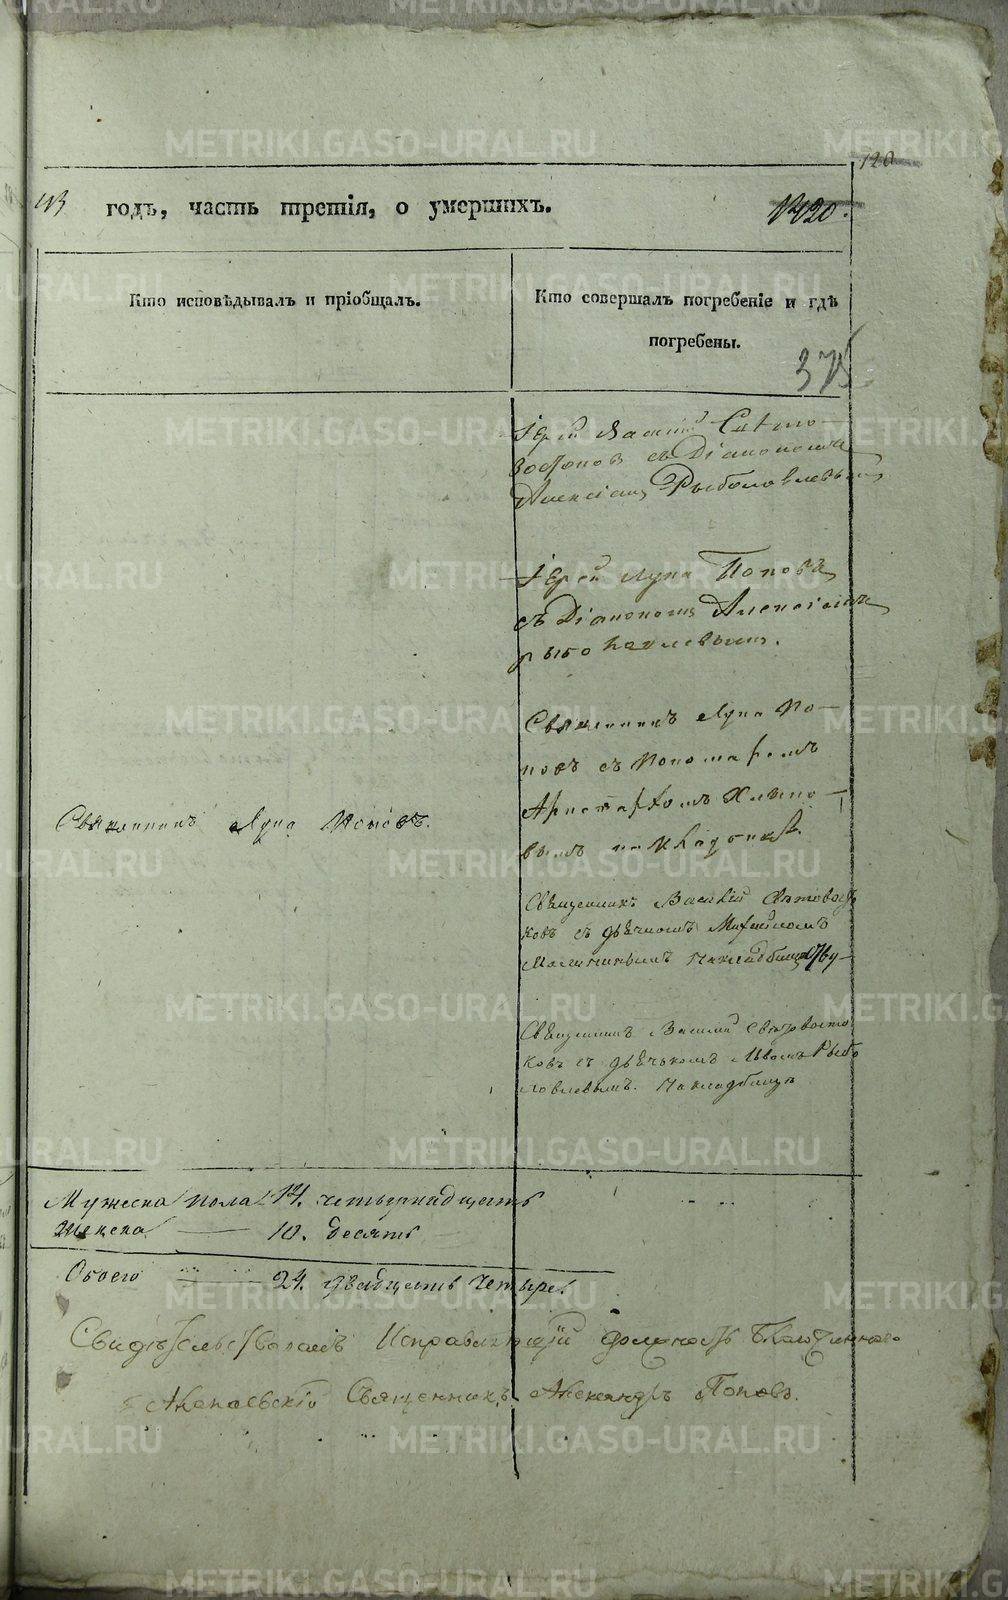 120
годъ, часть третія, о умершихъ.
Кто исповѣдывалъ и пріобщалъ.
Кто совершалъ погребеніе и гдѣ
погребены.
375
Іерей Василій Свѣтово-
востоковъ съ Діакономъ
Алексіемъ Рыболовлевымъ
Іерей Лука Поповъ
съ Діакономъ Алексіемъ
Священникъ Лука По-
повъ съ Пономаремъ
Аристархомъ
вымъ на кладбищѣ
Священникъ Лука Поповъ.
Священникъ Василій Свѣтовосто
ковъ съ дьячкомъ Михаиломъ
на кладбищѣ
Священникъ Василій Свѣтовосто
ковъ съ дьячькомъ Львомъ Рыбо
ловлевымъ. На кладбищѣ
Мужеска пола 14. четырнадцать
Женска 10. десять
Обоего 24. двадцать четыре.
Свидѣтельствовалъ Исправляющій должность Благочиннаго
Священникъ Александръ Поповъ.
METRIKI.GASO-URAL.RU